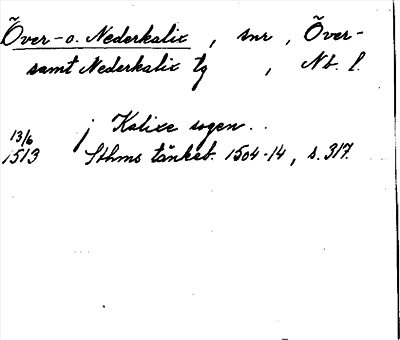 Över- o. Nederkalix, snr, Över-
samt Nederkalix tg, Nb. l.
j Kalixe sogen..
13/6
1513 Sthms tänkeb. 1504-14, s. 317.